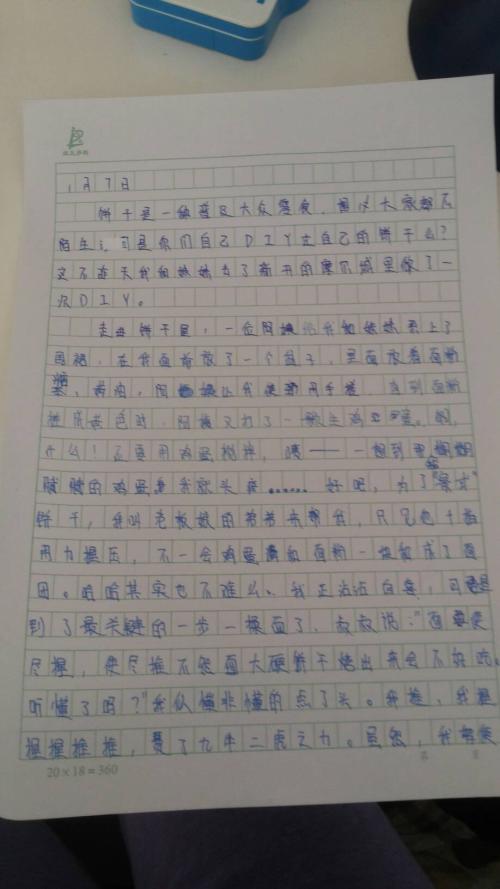 1月7日
饼干是一种普及大众零食,想必大家都不
陌生,可是你们自己DIY过自己的饼干么?
这不前天我和妹妹去了新开的摩尔城里做了一
次DIY。
走进饼干屋,一位阿姨给我和妹妹系上了
围裙,在我面前放了一个盆子,里面放着面粉
黄油,阿姨让我使劲用手搓,直到面粉
变成黄色时,阿姨又打了一生鸡蛋。啊,
什么!还要用鸡蛋搅拌,咦——一想到黏糊糊
腻腻的鸡蛋我就头疼……好吧,为了
饼干,我叫老板娘的弟弟来帮我,只见他十指
用力握压,不一会鸡蛋黄和面粉一块就成了面
团。哈哈其实也不难么。我正沾沾自喜,可是
到了最关键的一步—揉面了,叔叔说:"面要使
尽揉,使尽推不然面太硬饼干烤出来会不好吃。
听懂了吗?"我似懂非懂的点了头。我推、我握
握握推推,费了九牛二虎之力。虽然,我努使
20×18=360
第 页